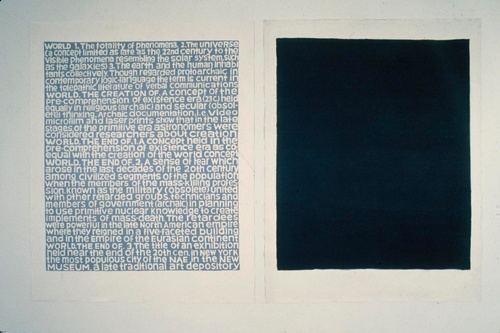 WORLD 1. The totality of phenomena. 2. The universe
(a concept limited as late as the 22nd century to the
visible phenomena resembling the solar system, such
as the galaxies) 3. The earth and the human inhabi
tants collectively. Though regarded protoarchaic in
contemporary logic-language the term is current in
the telepathic literature of verbal communications
WORLD, THE CREATION OF. A concept of the
pre-comprehension of existence era (21C) held
equally in religious (archaic) and secular (obsol-
ete) thinking. Archaic documentation, i.e. video
microfilm and laser prints show that in the late
stages of the primitive era astronomers were
considered researchers about creation
WORLD, THE END OF. 1. A concept held in the
pre-comprehension of existence era as co-
equal with the creation of the world concept
WORLD, THE END OF. 2. A sense of fear which
arose in the last decades of the 20th century
among civilized segments of the population
when the members of the mass-killing profes
sion known as the military (obsolete) united
with other retarded groups, technicians and
members of government (archaic) in planning
to use primitive nuclear knowledge to create
implements of mass-death. The retardees
were powerful in the late North American empire
where they reigned in a five-faceted building
and in the Empire of the Eurasian continent
WORLD, THE END OF. 3. The title of an exhibition
held near the end of the 20th cen. in New York
the most populous city of the NAE, in the NEW
MUSEUM, a late traditional art depository